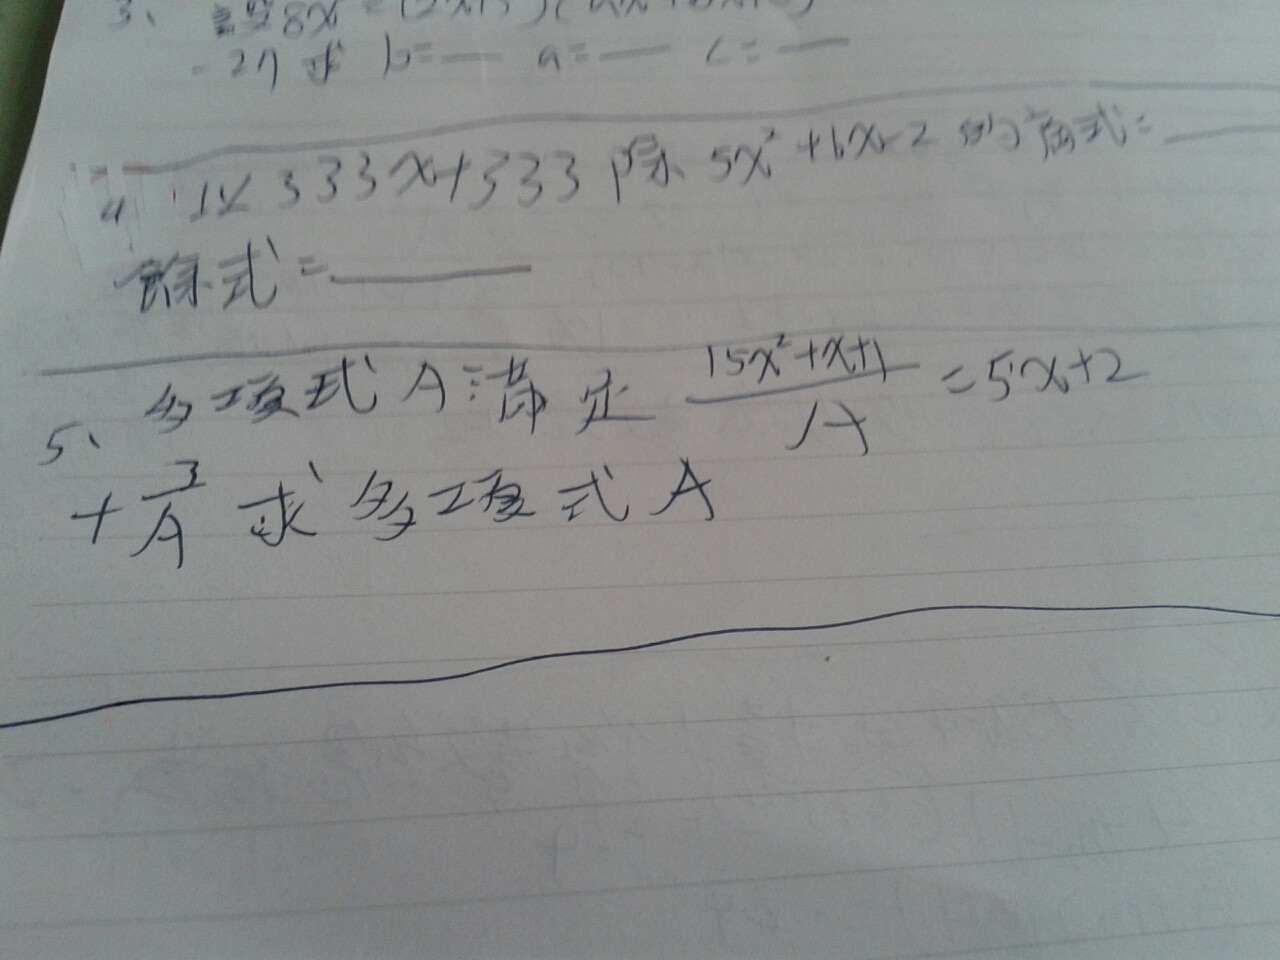 3、 8x = (2x+3)(ax+bx+c)
-27 求 b=__ a=__ c=__
4 以333x+333除5x²+6x-2的商式=____
餘式=____
5、 多項式A滿足 (15x²+x+1)/A =5x+2
+ 3/A 求多項式A